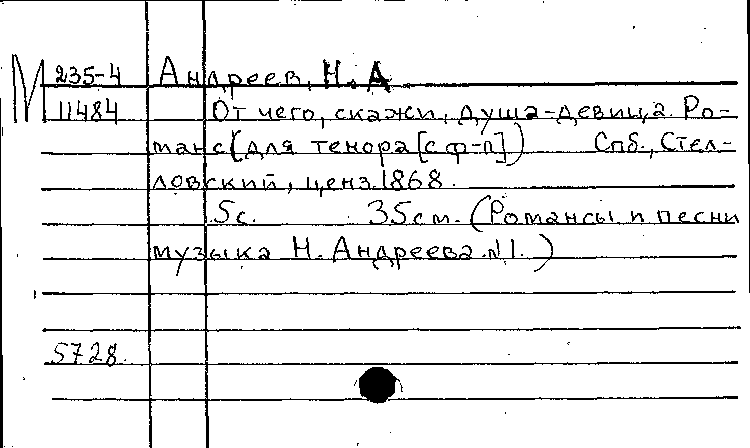 М 235-4 Андреев, Н. А
11484 От чего, скажи, душа-девица. Ро-
манс (для тенора [с ф-п]) Спб., Стел-
ловский, ценз. 1868.
5с. 35см. (Романсы и песни
музыка Н. Андреева. N1.)
5728.